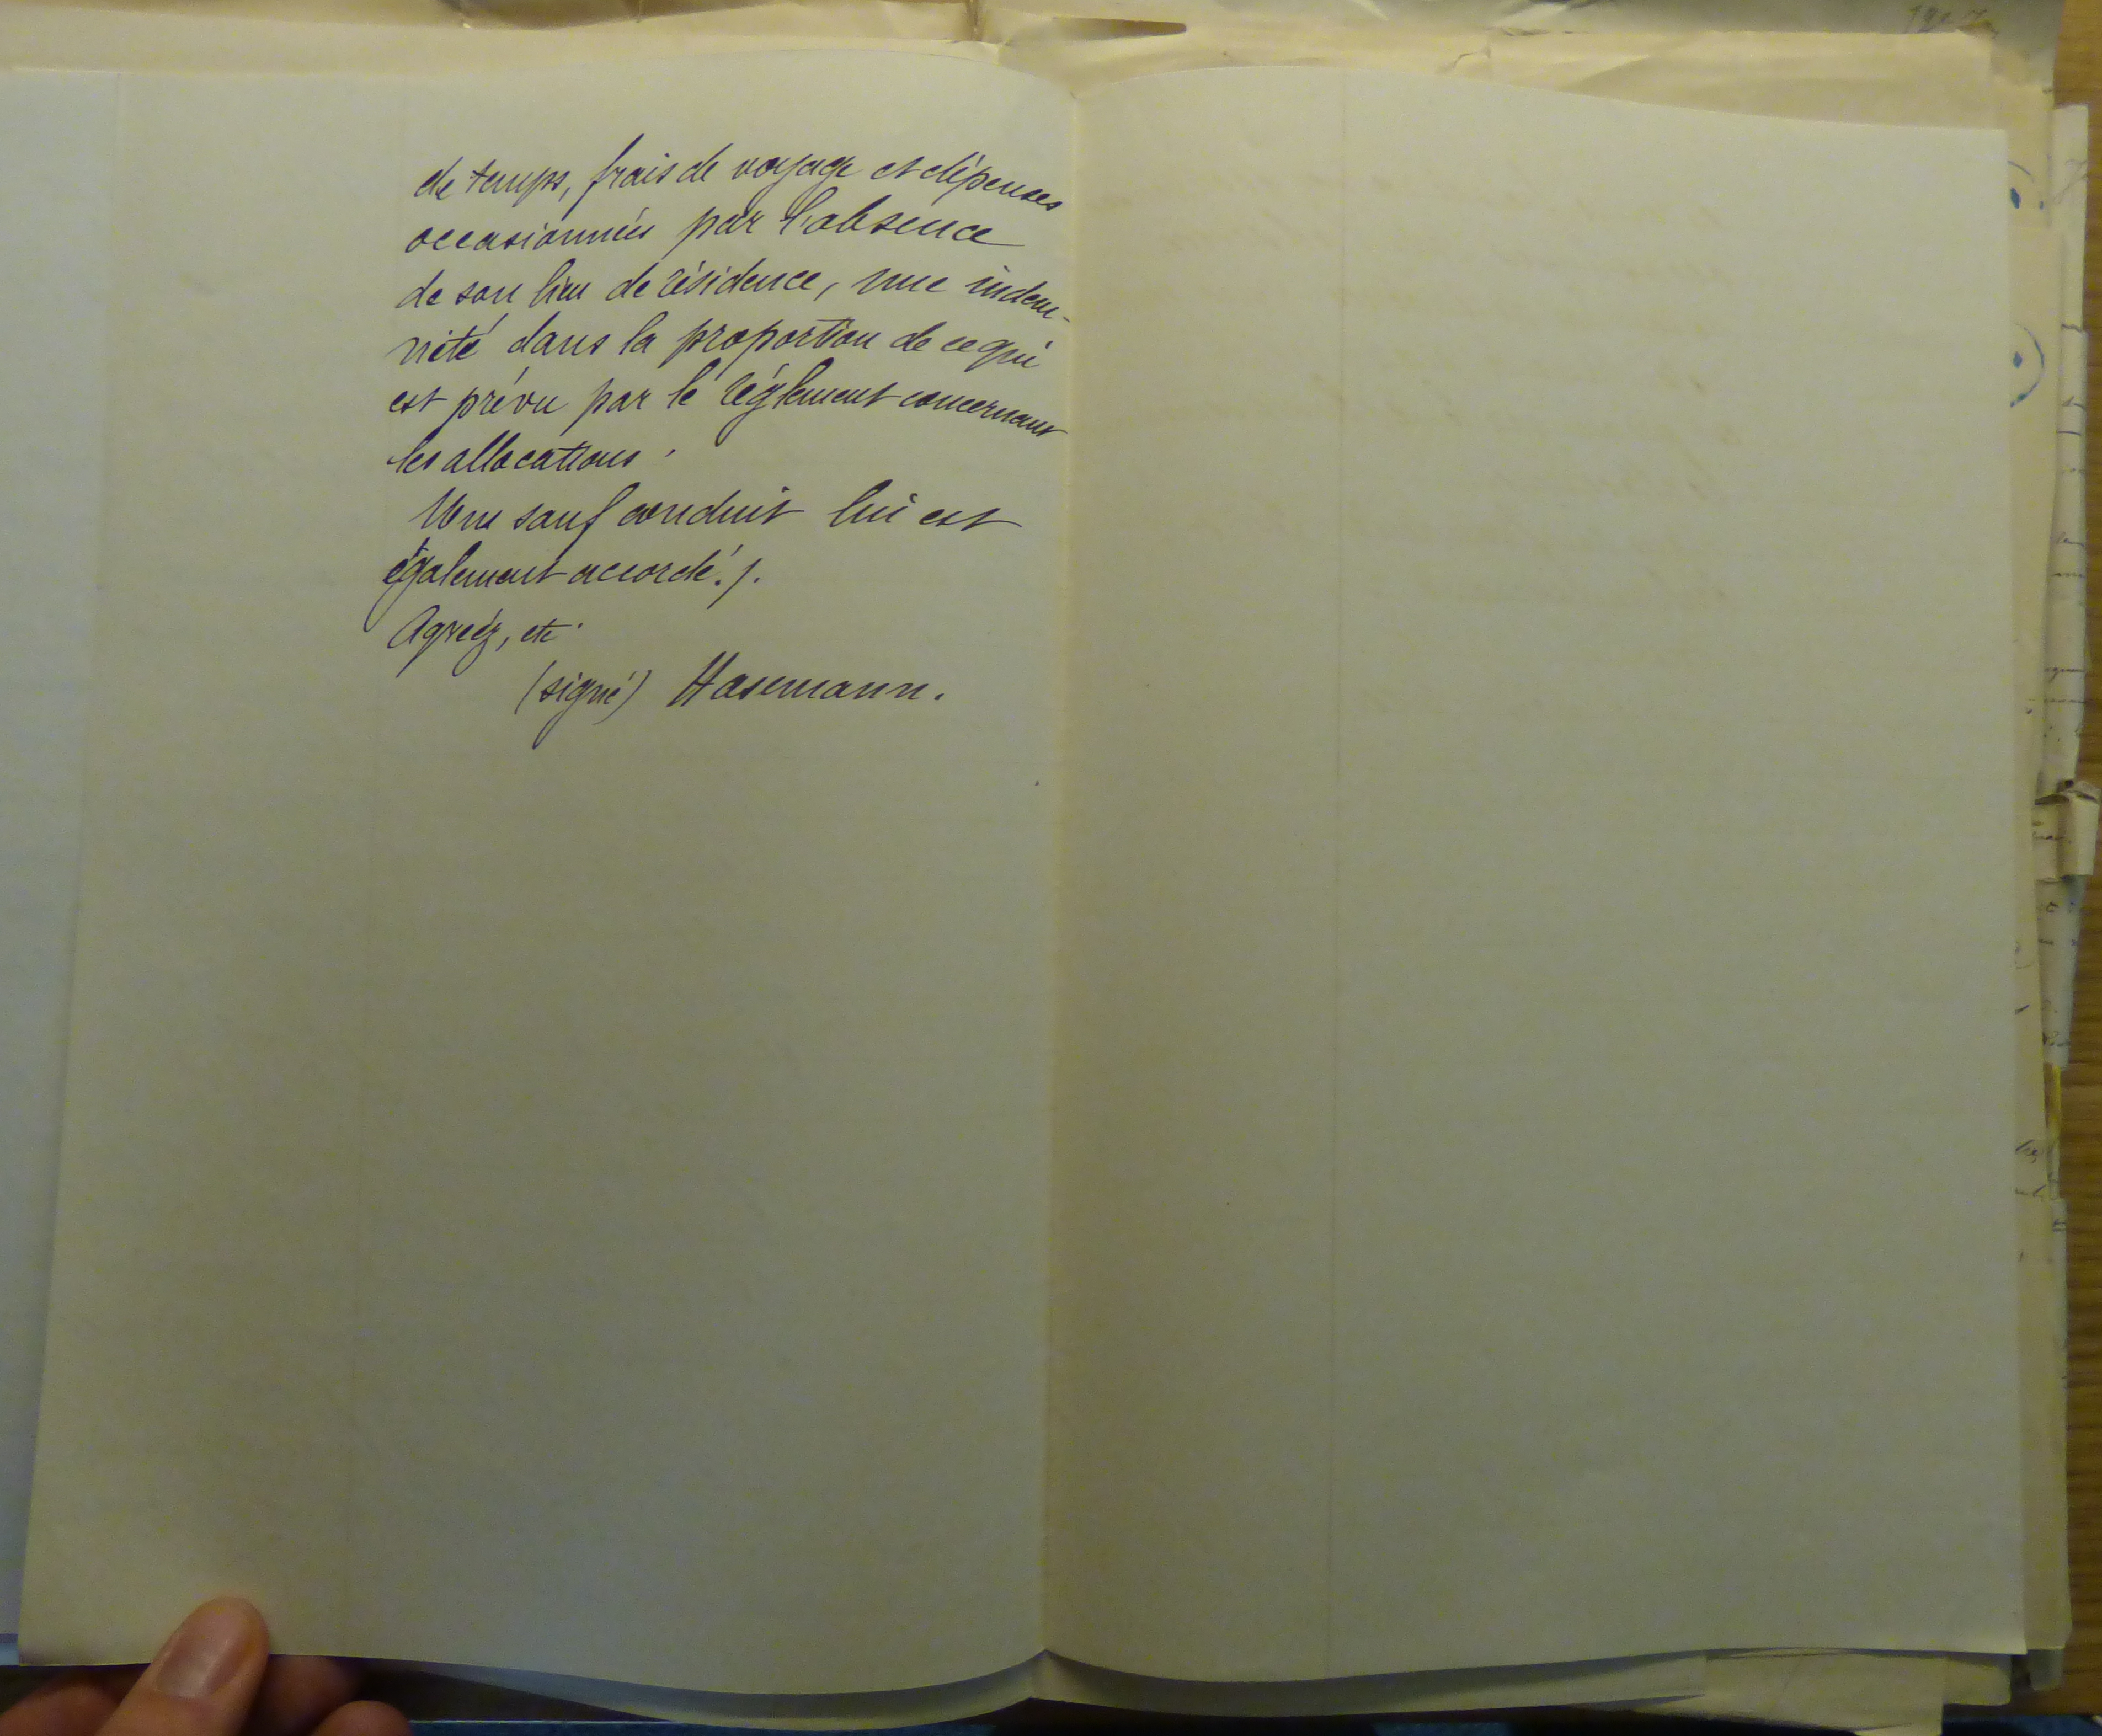 de temps, frais de voyage et dépenses
occasionnées par l'absence
de son lieu de résidence, une indem-
nité dans la proportion de ce qui
est prévu par le réglement concernant
les allocations.
Un sauf conduit lui est
également accordé./.
Agréez, etc.
(signé) Hasemann.